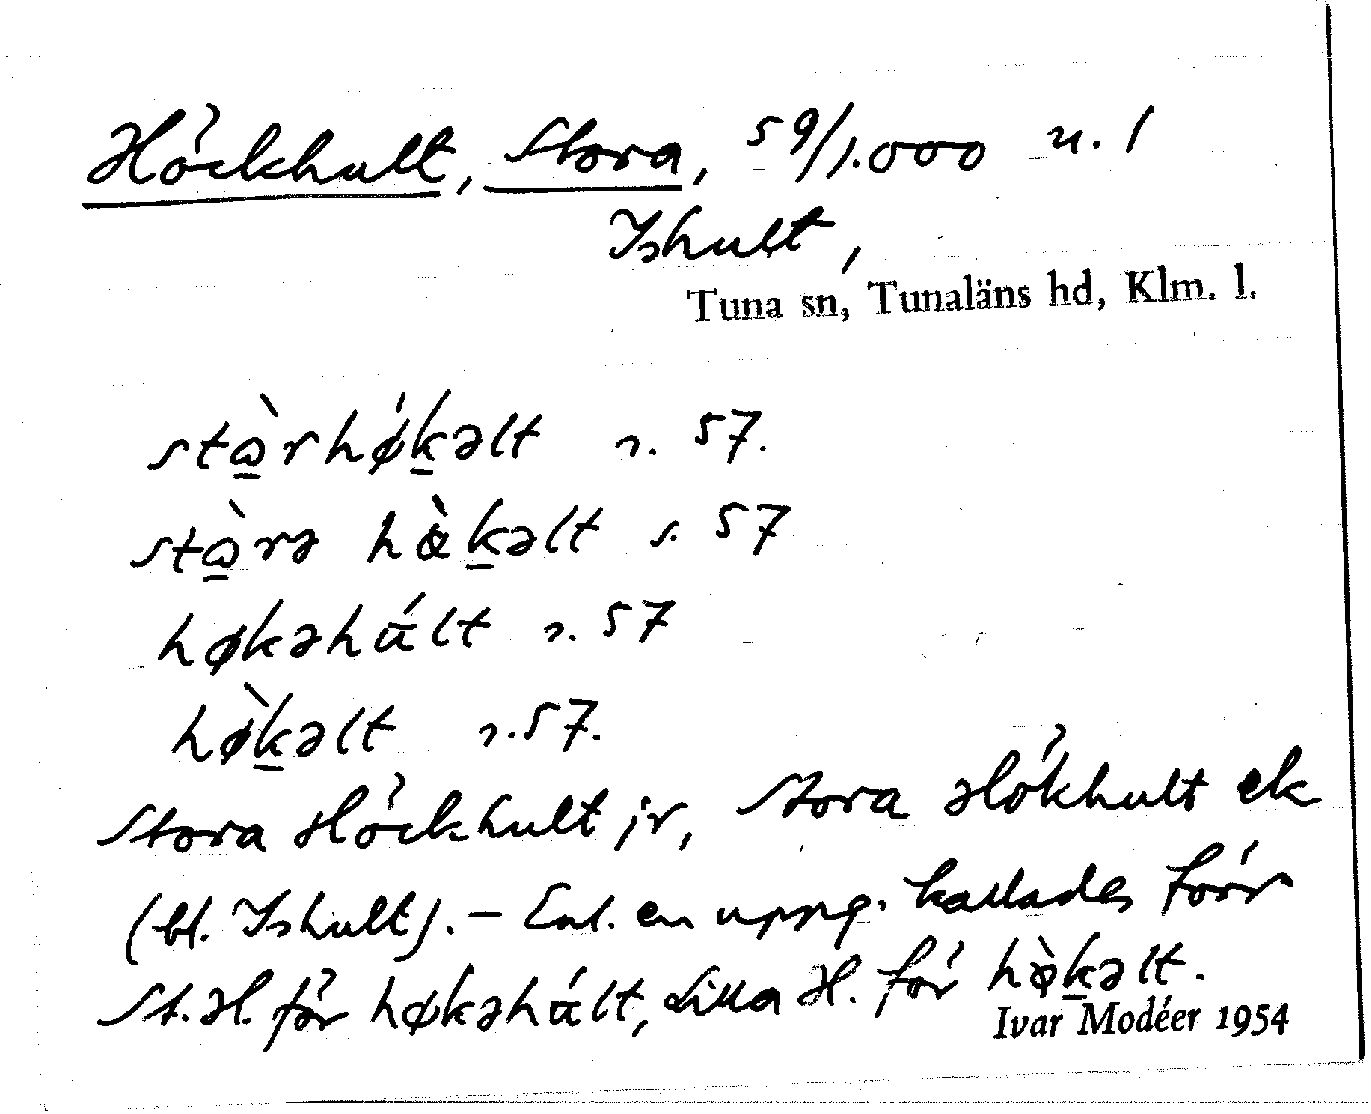 Höckhult, Stora, 59/1.000 n. 1
Ishult,
Tuna sn, Tunaläns hd, Klm. l.
stɷ̠̀rhǿk̠əlt s. 57.
stɷ̠̀rə hœ̀k̠əlt s. 57
høkəhált s. 57
hø̀k̠əlt s. 57.
Stora Höckhult jr, Stora Hökhult ek
(bl. Ishult). – Enl. en uppg. kallades förr
St. H. för høkəhált, Lilla H. för hø̀k̠əlt.
Ivar Modéer 1954